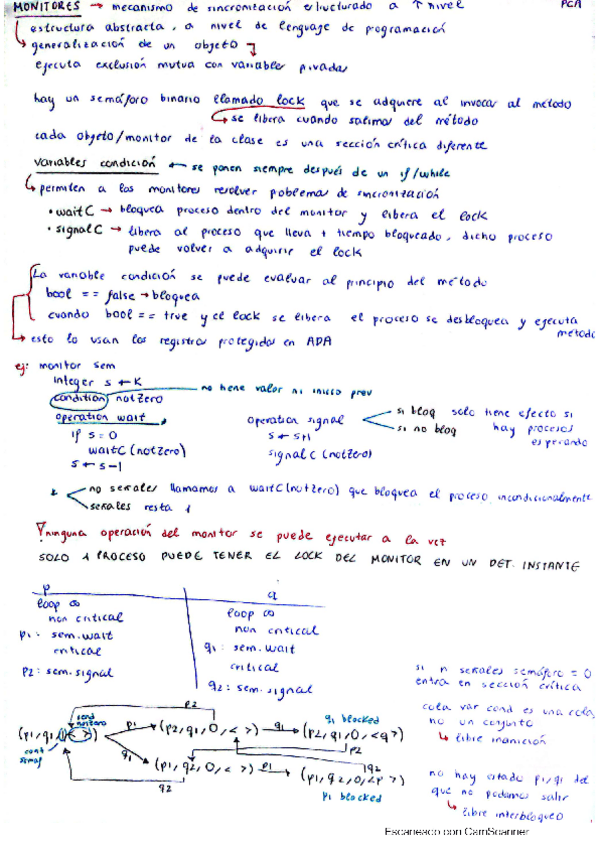 MONITORES → mecanismo de sincronización estructurado a ↑ nivel
PCA
estructura abstracta, a nivel de lenguaje de programación
generalización de un objeto
ejecuta exclusión mutua con variables pivadas
hay un semáforo binario llamado lock que se adquiere al invocar al método
se libera cuando salimos del método
cada objeto/monitor de la clase es una sección crítica diferente
variables condición ← se ponen siempre después de un if/while
permiten a los monitores resolver poblemas de sincronización
• waitC → bloquea proceso dentro del monitor y libera el lock
• signalC → libera al proceso que lleva + tiempo bloqueado, dicho proceso
puede volver a adquirir el lock
La variable condición se puede evaluar al principio del método
bool == false → bloquea
cuando bool == true y el lock se libera el proceso se desbloquea y ejecuta
método
esto lo usan los registros protegidos en ADA
ej: monitor sem
integer s ← K
condition notzero
no tiene valor ni inicio prev
operation wait
if s = 0
waitC (notzero)
s ← s-1
operation signal
s ← s+1
signalC (notzero)
si bloq solo tiene efecto si
si no bloq hay procesos
esperando
no señales llamamos a waitC(notzero) que bloquea el proceso incondicionalmente
señales resta 1
ninguna operación del monitor se puede ejecutar a la vez
SOLO 1 PROCESO PUEDE TENER EL LOCK DEL MONITOR EN UN DET. INSTANTE
p q
loop ∞ loop ∞
non critical non critical
p1: sem.wait q1: sem.wait
critical critical
p2: sem.signal q2: sem.signal
si n señales semáforo = 0
entra en sección crítica
cola var cond es una cola,
no un conjunto
libre inanición
p2
cond notzero
(p1,q1,1,< >) p1 (p2,q1,0,< >) q1 (p2,q1,0,<q>)
q1 blocked
cont semaf
p2
q1 (p1,q2,0,< >) p1 (p1,q2,0,<p>)
q2
p1 blocked
q2
no hay estado p1,q1 del
que no podamos salir
libre interbloqueo
Escaneado con CamScanner